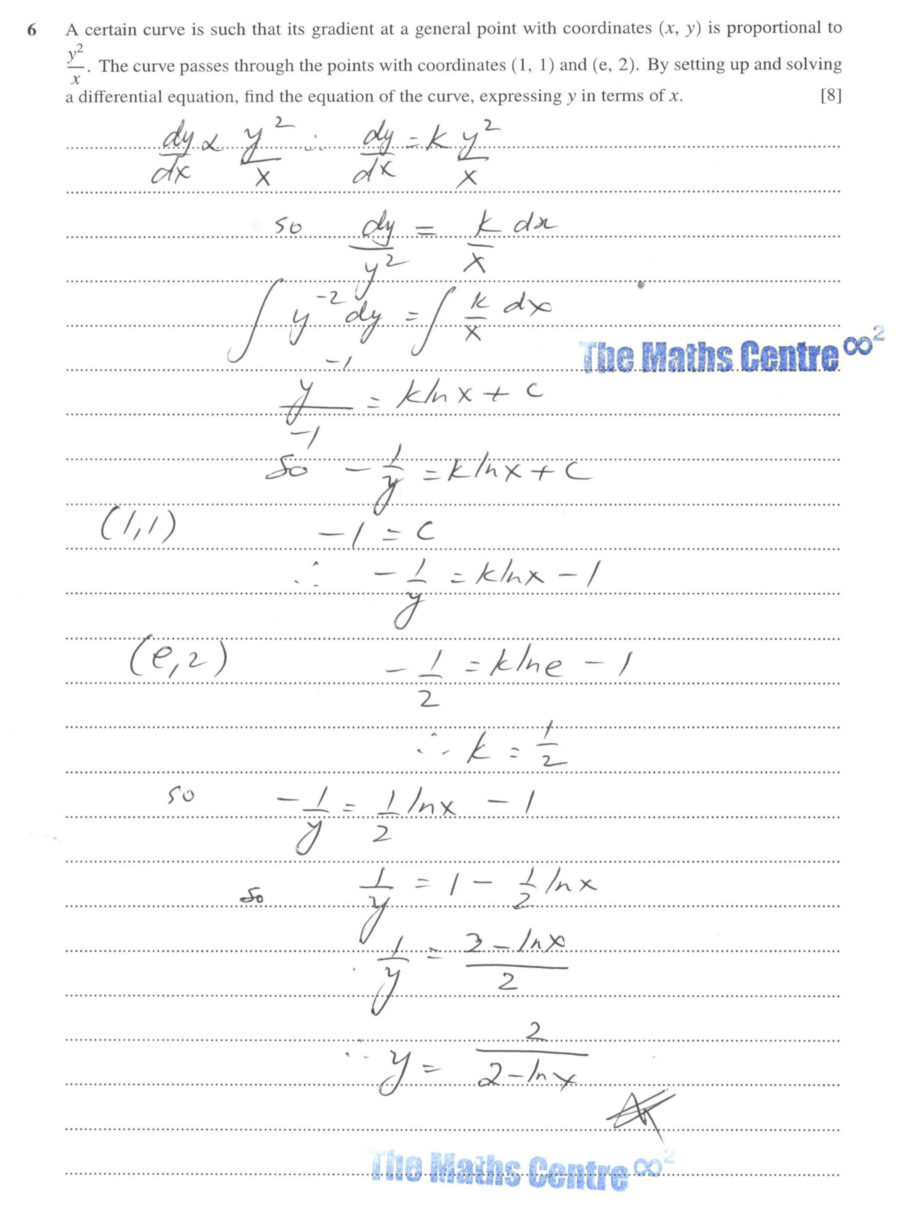 6 A certain curve is such that its gradient at a general point with coordinates (x, y) is proportional to
y²/x. The curve passes through the points with coordinates (1, 1) and (e, 2). By setting up and solving
a differential equation, find the equation of the curve, expressing y in terms of x. [8]
dy/dx ∝ y²/x ∴ dy/dx = k y²/x
so dy/y² = k/x dx
∫ y⁻² dy = ∫ k/x dx
The Maths Centre ∞²
y⁻¹/-1 = k ln x + c
So -1/y = k ln x + c
(1,1) -1 = c
∴ -1/y = k ln x - 1
(e,2) -1/2 = k ln e - 1
∴ k = 1/2
so -1/y = 1/2 ln x - 1
so 1/y = 1 - 1/2 ln x
∴ 1/y = 2 - ln x / 2
∴ y = 2 / 2 - ln x
The Maths Centre ∞²